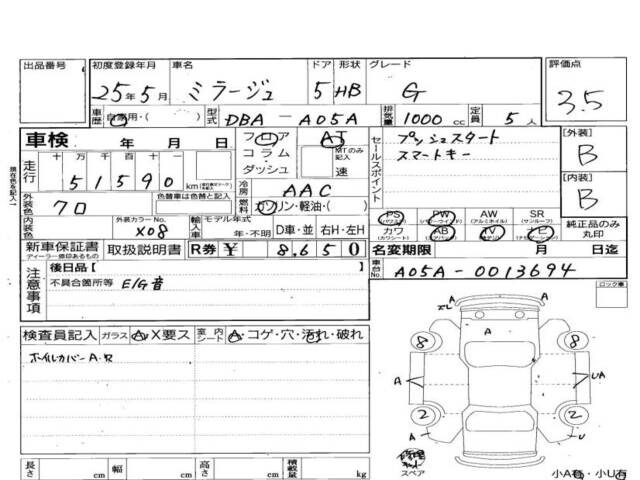 出品番号 初度登録年月 車名 ドア 形状 グレード 評価点
25年5月 ミラージュ 5 HB G 3.5
車歴 自家用・( ) 型式 DBA-A05A 排気量 1000 cc 定員 5人
車検 年 月 日 フロア コラム・ダッシュ AT MTのみ記入 速
走行 十万 万 千 百 十 一
51590 km
セールスポイント プッシュスタート
スマートキー
[外装]
B
[内装]
B
冷房 AAC
外装色 内装色 クロ 色替車は色替と記入
燃料 ガソリン・軽油・( )
外装カラーNo. X08 輸入車 モデル年式 年・不明 D車・並 右H・左H
PS PW AW SR
(パワステ) (パワーウィンド) (アルミホイル) (サンルーフ)
カワ AB TV ナビ
(カワシート) (エアバック)
純正品のみ丸印
新車保証書 取扱説明書 R券 ¥ 8,650
ディーラー印のあるもの
名変期限 月 日迄
車台No. A05A-0013694
注意事項 後日品[ ]
不具合箇所等 E/G音
ロック車
検査員記入 ガラス A・X要ス 室内シート A・コゲ・穴・汚れ・破れ
ホイルカバーA・欠
A
エレ A
A
8 8
A UA
2 2
A U
修理キット
スペア
長さ cm 幅 cm 高さ cm 積載量 kg
小A有・小U有